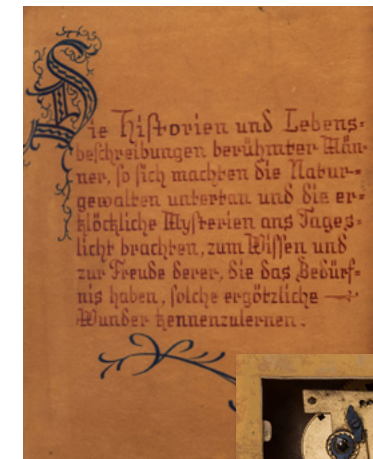 Die Historien und Lebens=
beschreibungen berühmter Män=
ner, so sich machten die Natur=
gewalten untertan und die er=
klöckliche Mysterien ans Tages=
licht brachten, zum Wissen und
zur Freude derer, die das Bedürf=
nis haben, solche ergötzliche
Wunder kennenzulernen.